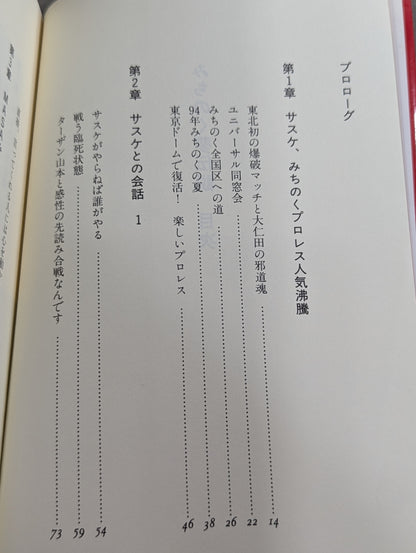 プロローグ
第1章 サスケ、みちのくプロレス人気沸騰
東北初の爆破マッチと大仁田の邪道魂 14
ユニバーサル同窓会 22
みちのく全国区への道 26
94年みちのくの夏 38
東京ドームで復活! 楽しいプロレス 46
第2章 サスケとの会話 1
サスケがやらねば誰がやる 54
戦う臨死状態 59
ターザン山本と感性の先読み合戦なんです 73